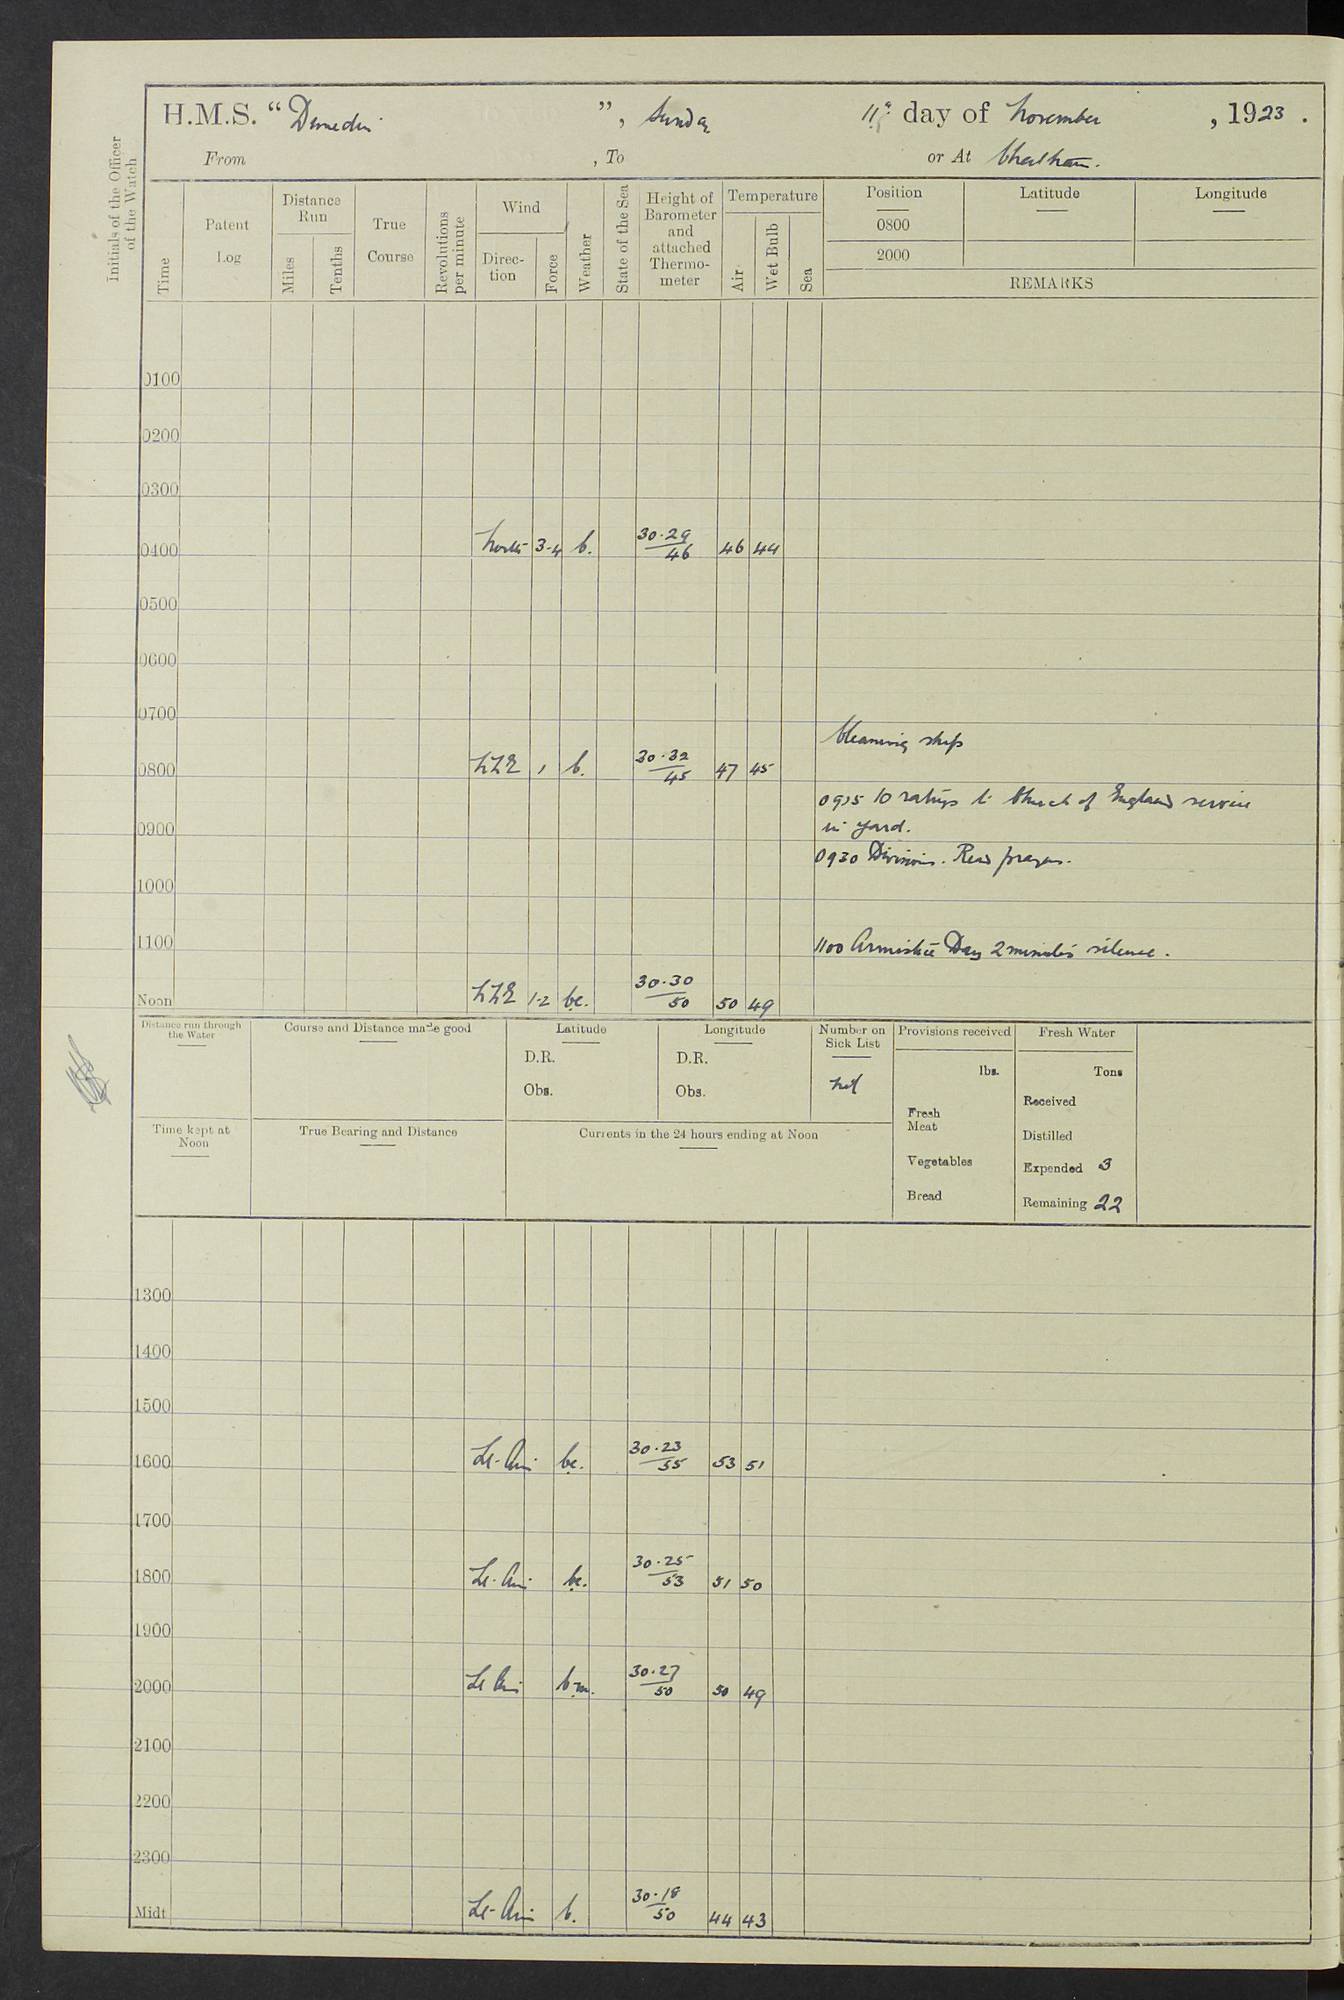 H.M.S. “Dunedin”, Sunday 11th day of November, 1923.
From , To or At Chatham.
Initials of the Officer of the Watch
Time
Patent Log
Distance Run
Miles
Tenths
True Course
Revolutions per minute
Wind
Direction
Force
Weather
State of the Sea
Height of Barometer and attached Thermometer
Temperature
Air
Wet Bulb
Sea
Position
0800
2000
Latitude
Longitude
REMARKS
0100
0200
0300
0400 North 3-4 b. 30.29 46 46 44
0500
0600
0700
Cleaning ship
0800 NNE 1 b. 30.32 45 47 45
0915 10 ratings to Church of England service
in yard.
0900
0930 Divisions. Read prayers.
1000
1100 1100 Armistice Day 2 minutes silence.
Noon NNE 1-2 bc. 30.30 50 50 49
Distance run through the Water
Course and Distance made good
Latitude
D.R.
Obs.
Longitude
D.R.
Obs.
Number on Sick List
Nil
Provisions received
lbs.
Fresh Meat
Vegetables
Bread
Fresh Water
Tons
Received
Distilled
Expended 3
Remaining 22
Time kept at Noon
True Bearing and Distance
Currents in the 24 hours ending at Noon
1300
1400
1500
1600 Lt-Airs bc. 30.23 55 53 51
1700
1800 Lt. Airs bc. 30.25 53 51 50
1900
2000 Lt Airs bm. 30.27 50 50 49
2100
2200
2300
Midt Lt-Airs b. 30.18 50 44 43